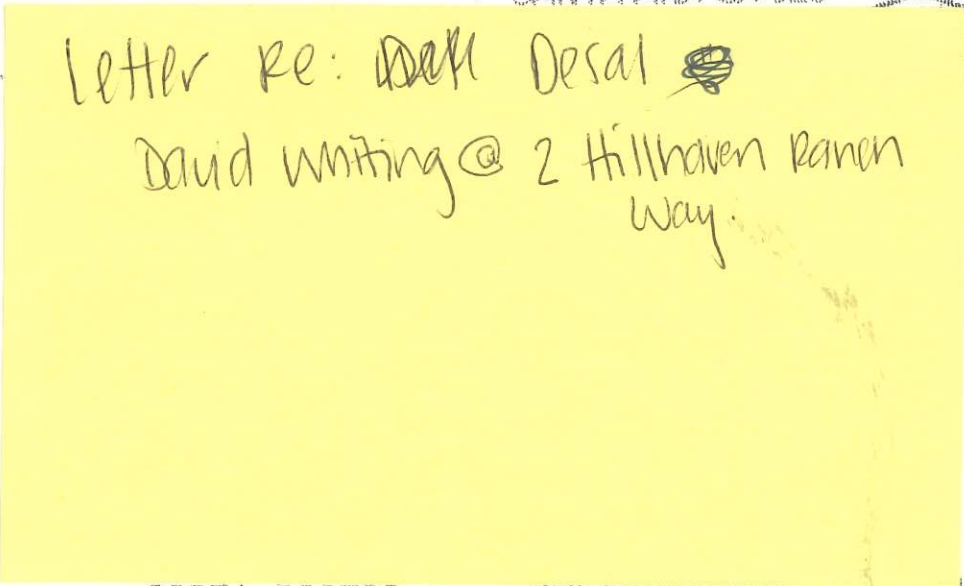 Letter Re: Desal
David Whiting @ 2 Hillhaven Ranch
Way.